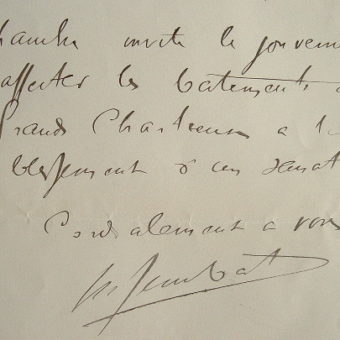 hambre invite le gouverne
affecter les batiments d
Grande Chartreuse a l'
blissement d'un sanat
Cordialement a vous
M Sembat